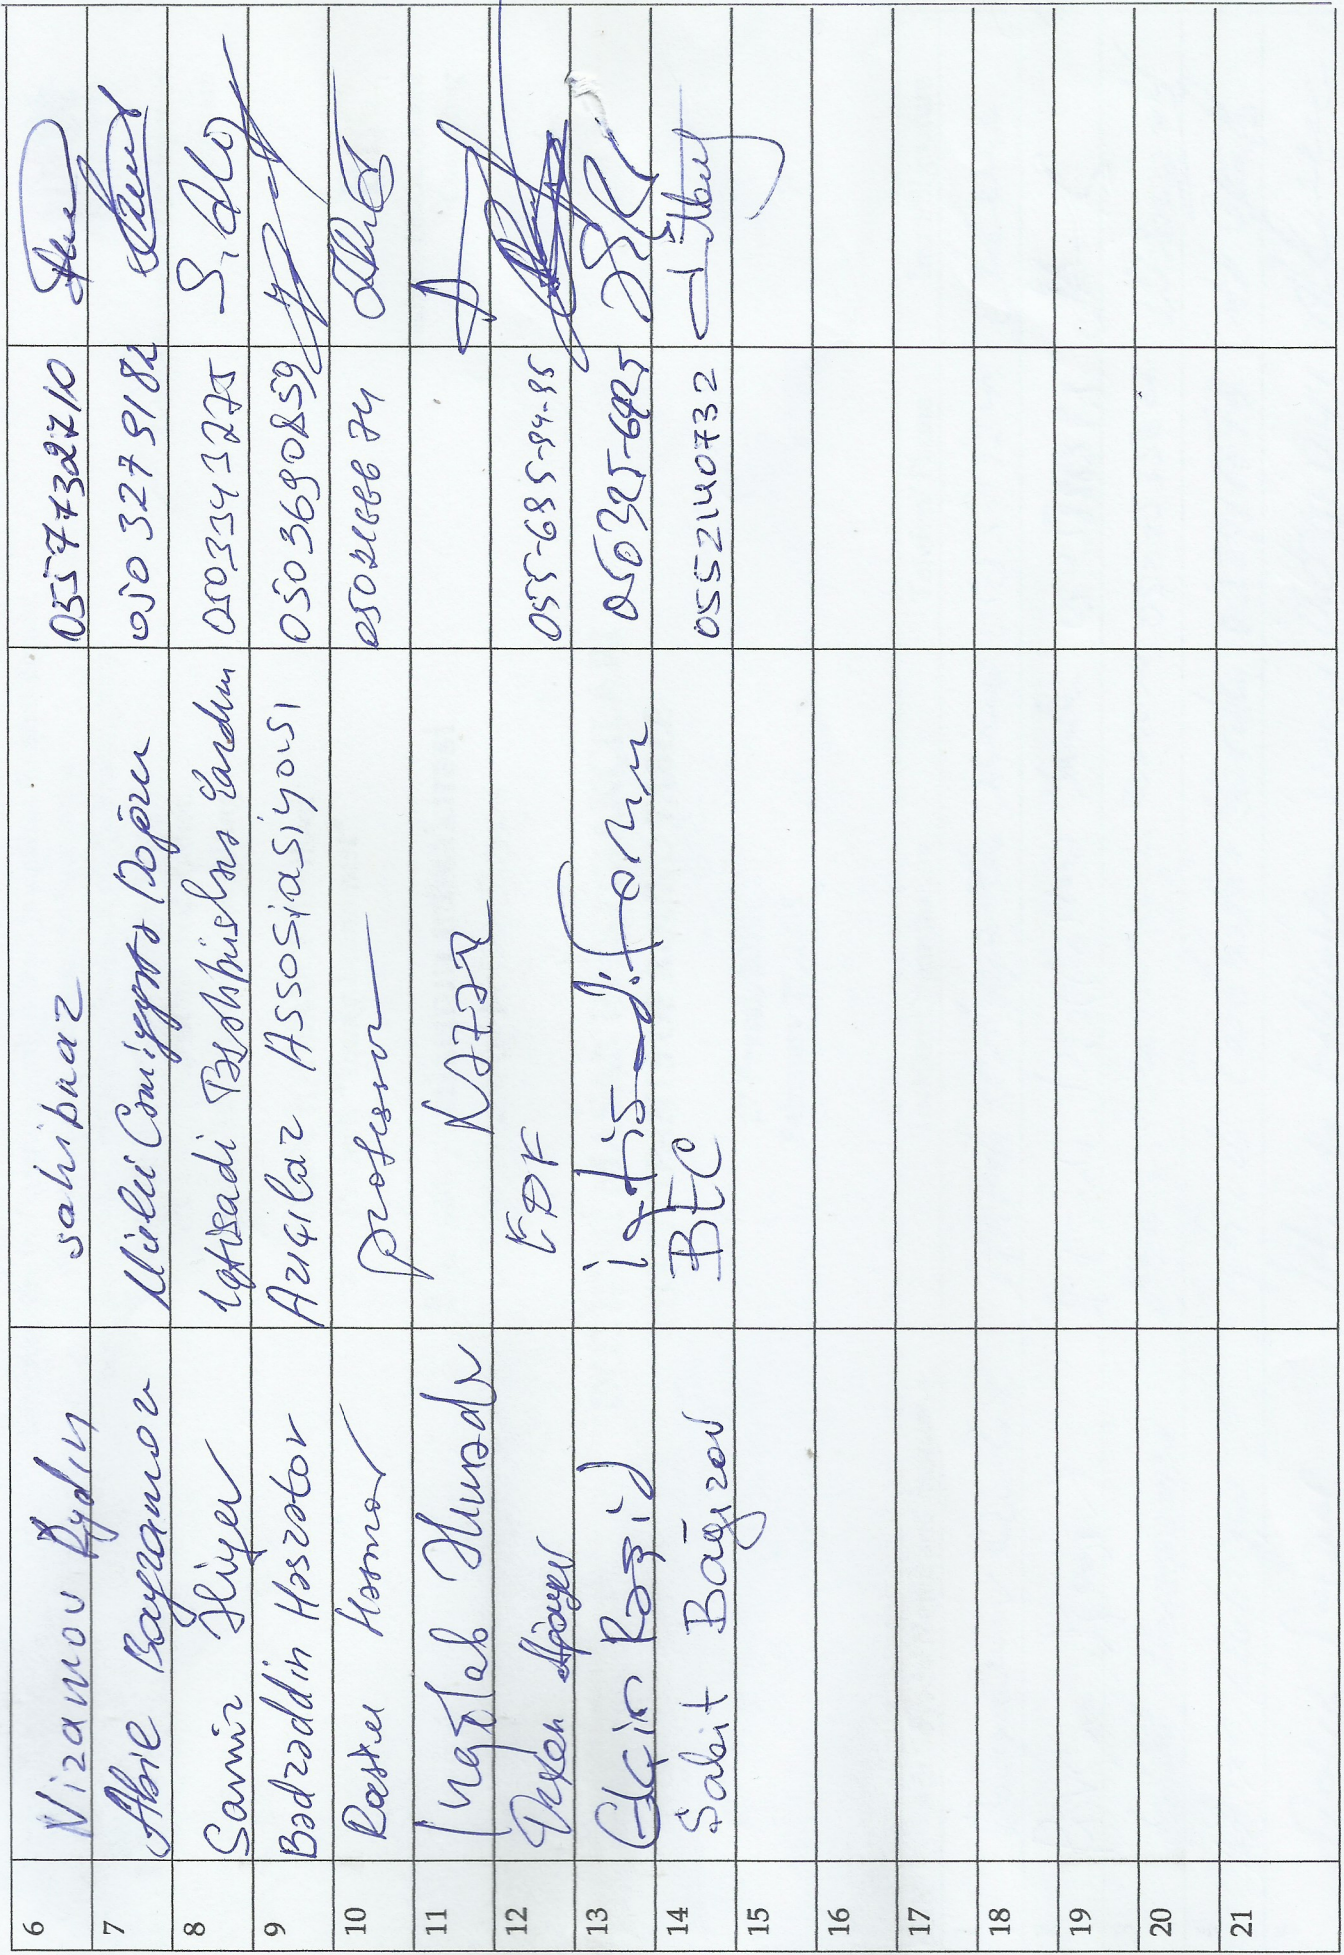 6 Nizamov Aydın sahibkar 0557732710
7 Abil Bayramov Milli Cəmiyyətə Doğru 050 327 9182
8 Samir Əliyev İqtisadi Təşəbbüslərə Yardım 0503343275 S. Əliy
9 Bədrəddin Həsrətov Arıçılar Assosiasiyası 0503690859
10 Rasim Həsənov professor
11 İnqilab Əhmədov Xəzər
12 EDF 055-685-94-95
13 Elçin Rəşid iqtis-diform
14 Sabit Bağırov BEC 0552140732
15
16
17
18
19
20
21